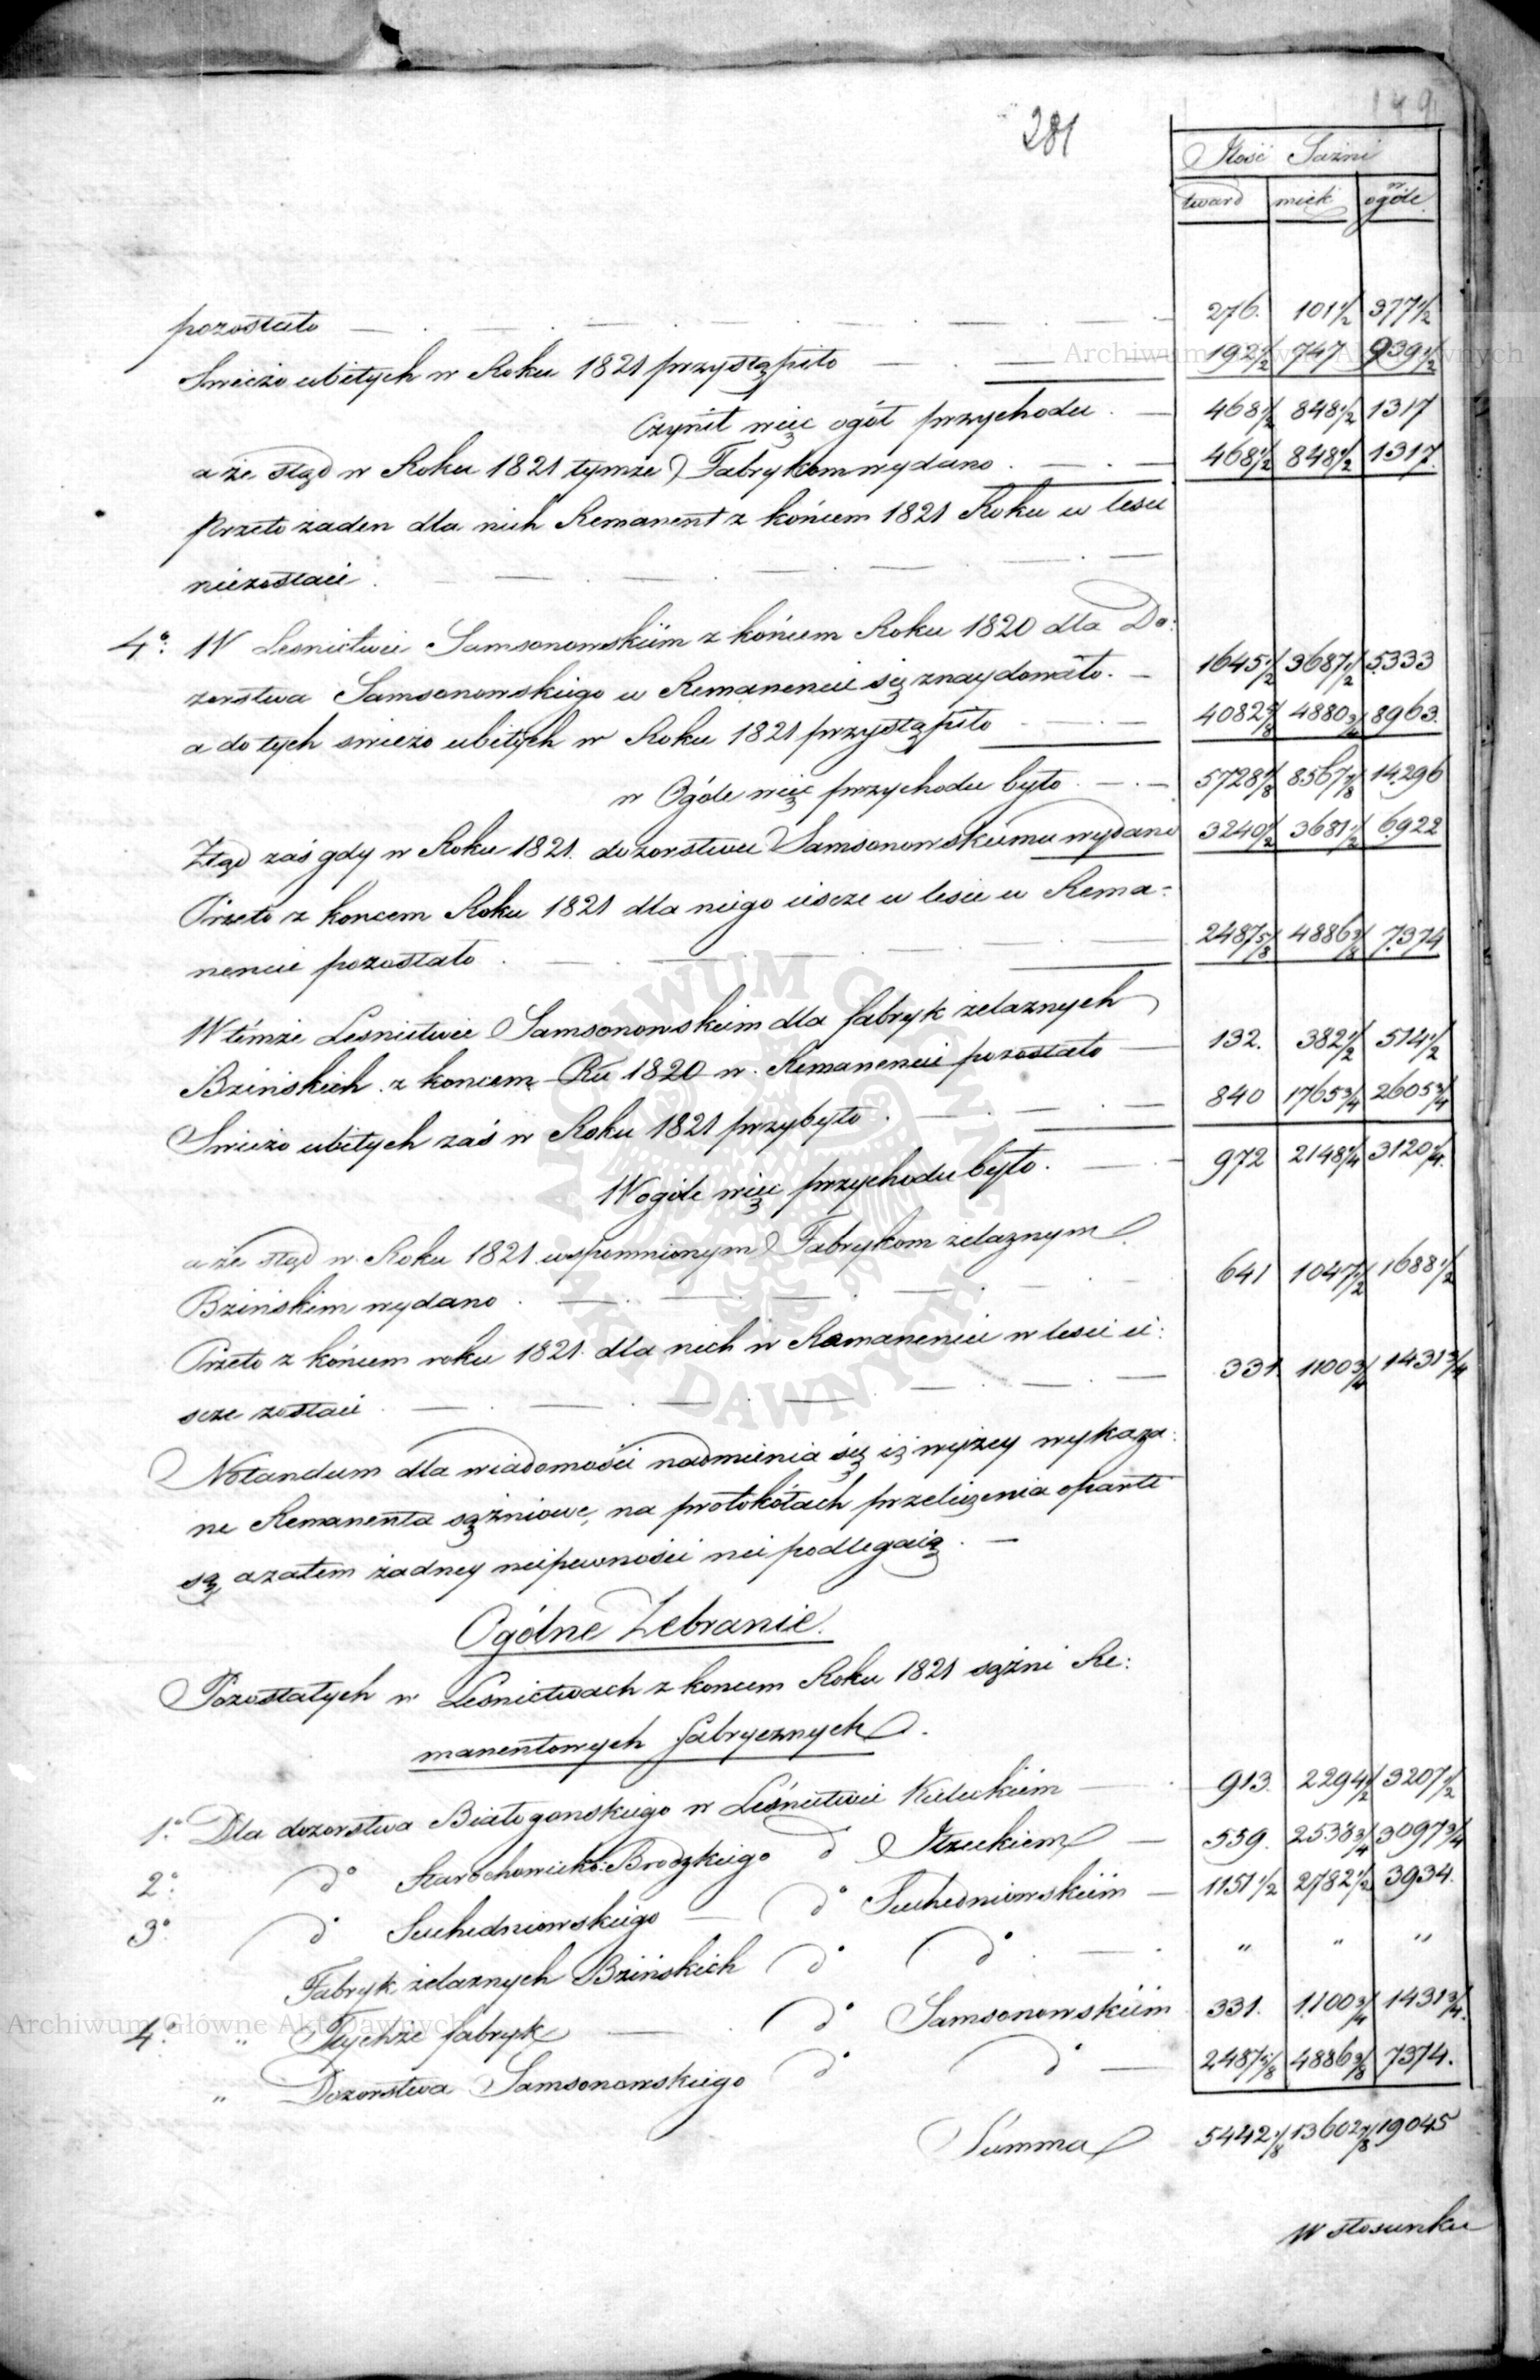 149
281
Ilość Sążni
tward miek w ogóle
pozostało — 276. 101 1/2 377 1/2
Swieżo ubitych w Roku 1821 przystąpiło — 192 1/2 747 939 1/2
Czynił więc ogół przychodu — 468 1/2 848 1/2 1317
a że stąd w Roku 1821 tymże Fabrykom wydano — 468 1/2 848 1/2 1317
przeto żaden dla nich Remanent z końcem 1821 Roku w lesie
niezostaie
4o W Lesnictwie Samsonowskiim z końcem Roku 1820 dla Do:
zorstwa Samsonowskiego w Remanencie się znaydowało — 1645 1/2 3687 1/2 5333
a do tych swieżo ubitych w Roku 1821 przystąpiło — 4082 5/8 4880 3/8 8963.
w Ogóle więc przychodu było — 5728 1/8 8567 7/8 14296
Ztąd zaś gdy w Roku 1821. dozorstwu Samsonowskiemu wydano 3240 1/2 3681 1/2 6922
Przeto z koncem Roku 1821 dla niego iescze w lesie w Rema-
nencie pozostało — 2487 5/8 4886 3/8 7374
W témże Lesnictwie Samsonowskim dla fabryk żelaznych
Bzińskich z koncem Ru 1820 w Remanencie pozostało — 132. 382 1/2 514 1/2
Swieżo ubitych zaś w Roku 1821 przybyło — 840 1765 3/4 2605 3/4
W ogóle więc przychodu było — 972 2148 1/4 3120 1/4
a że stąd w Roku 1821 wspomnionym Fabrykom żelaznym
Bzińskim wydano — 641 1047 1/2 1688 1/2
Przeto z końcem roku 1821 dla nich w Remanencie w lesie ie:
scze zostaie — 331. 1100 3/4 1431 3/4
Notandum dla wiadomości nadmienia się iż wyżey wykaza:
ne Remanenta sążniowe, na protokółach przeliczenia oparte
są, a zatem żadney niepewności nie podlegaią. —
Ogólne Zebranie.
Pozostałych w Lesnictwach z koncem Roku 1821 sążni Re:
manentowych fabrycznych.
1o Dla dozorstwa Białogonskiego w Leśnictwie Kieleckiém — 913. 2294 1/2 3207 1/2
2o do Starachowicko Brodzkiego do Iłzeckiem — 559. 2538 3/4 3097 3/4
3o do Suchedniowskiego — do Suchedniowskiim — 1151 1/2 2782 1/2 3934.
Fabryk żelaznych Bzińskich do do — " " "
4o " Tychże fabryk — do Samsonowskiim 331. 1100 3/4 1431 3/4
" Dozorstwa Samsonowskiego do do — 2487 5/8 4886 3/8 7374.
Summa 5442 1/8 13602 7/8 19045
W stosunku
Archiwum Główne Akt Dawnych
ARCHIWUM GŁÓWNE AKT DAWNYCH